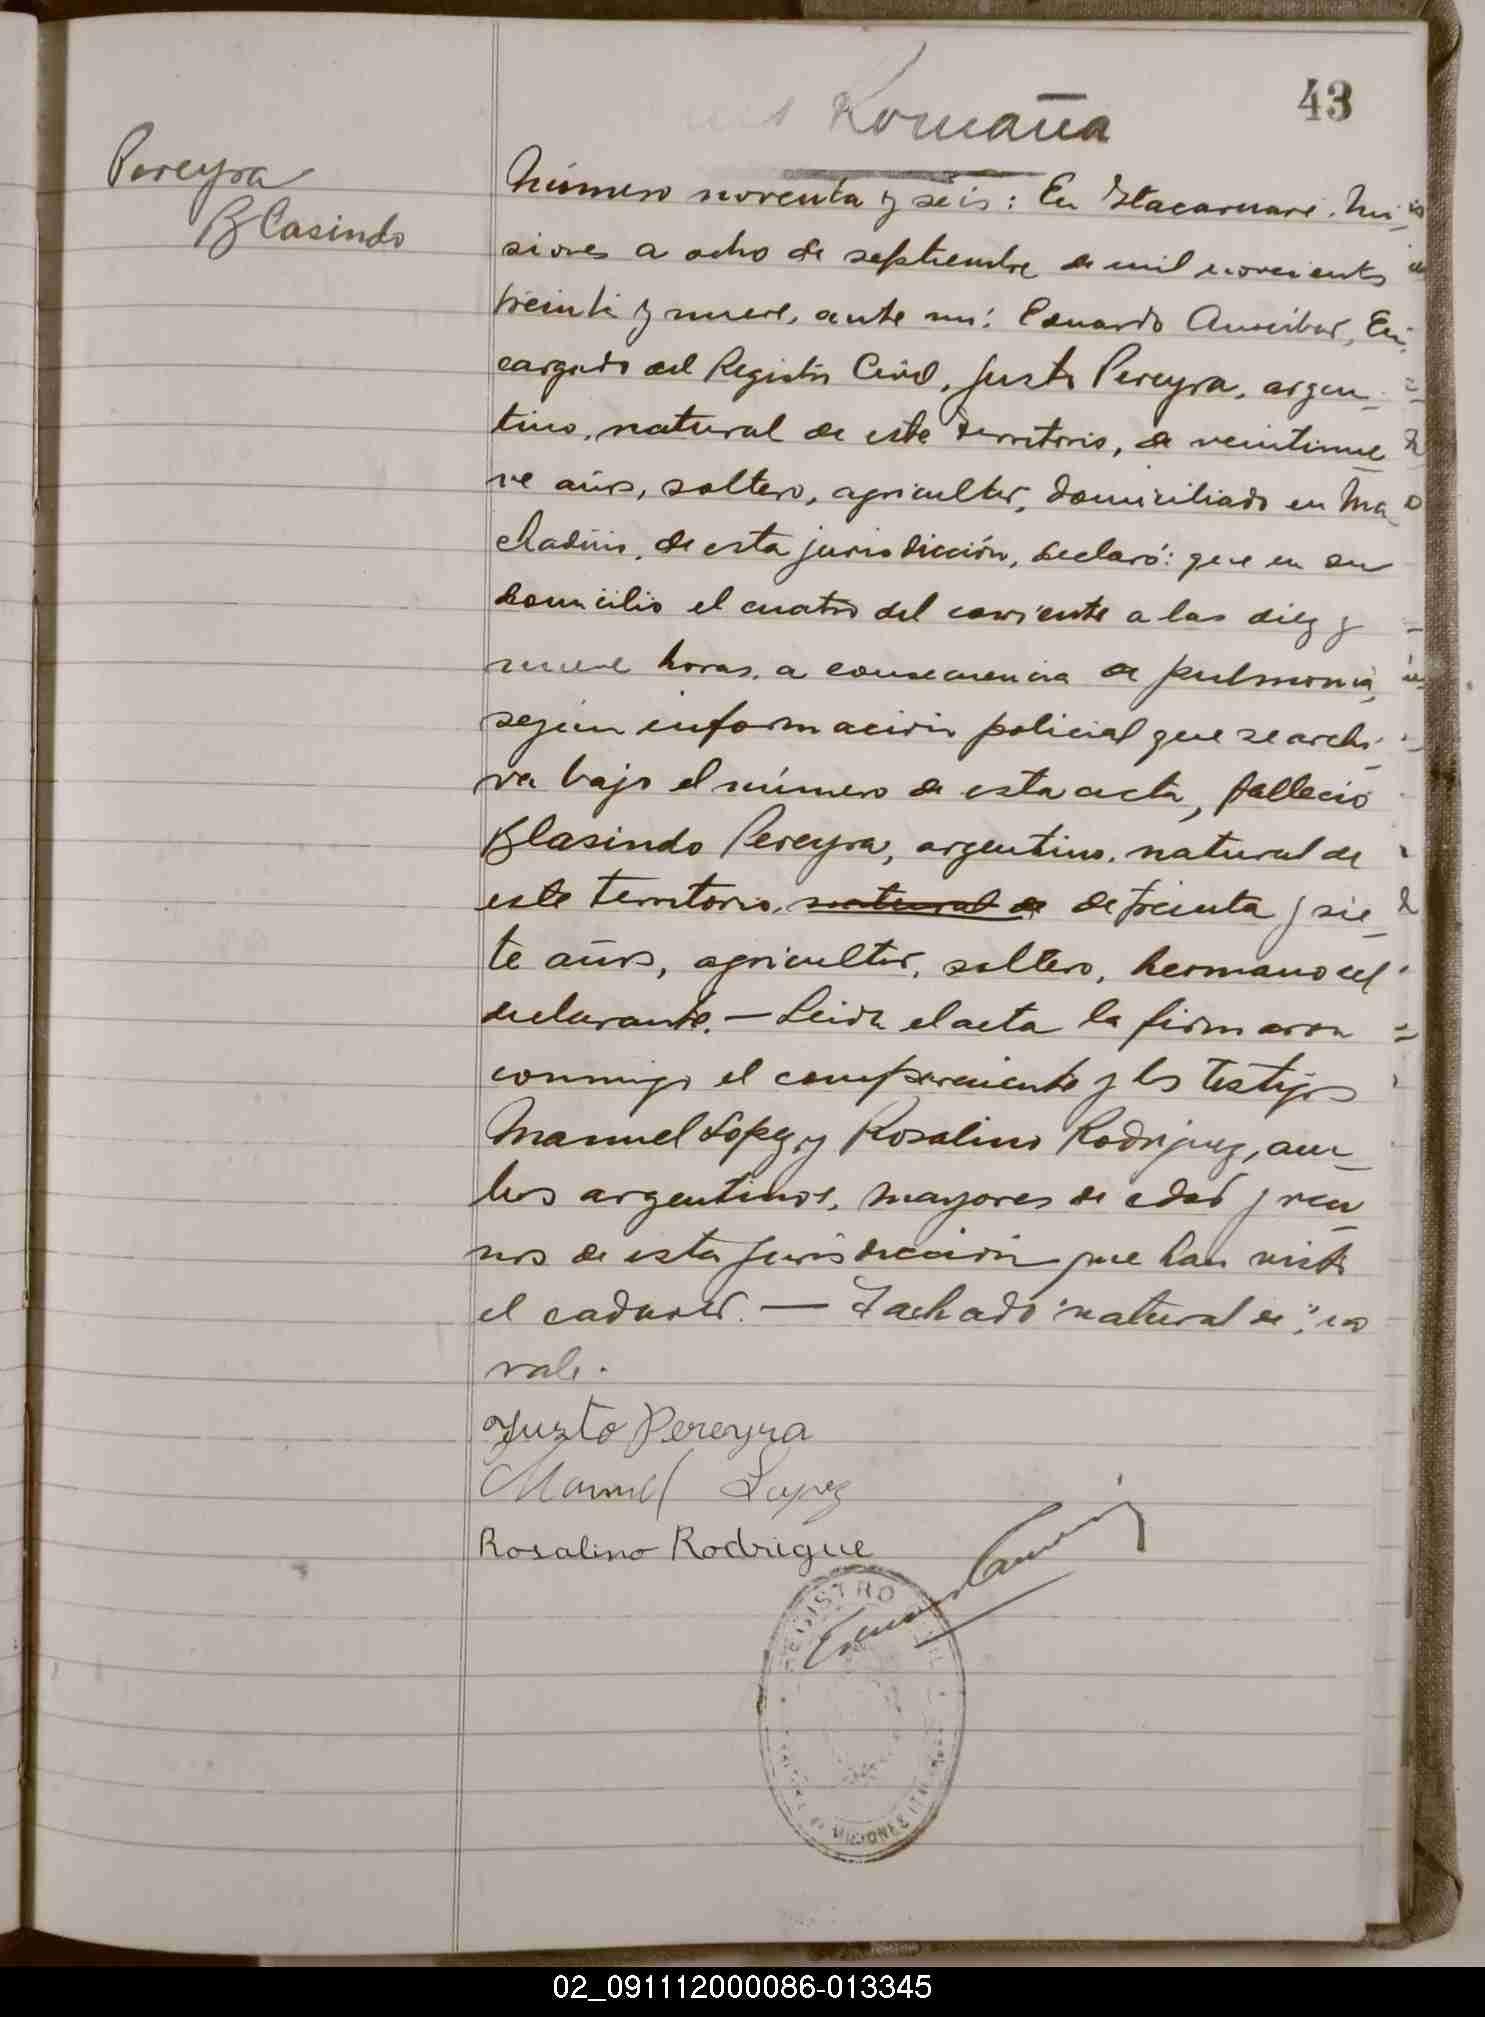 43
Romaña
Pereyra
Blasindo
Número noventa y seis: En Itacaruaré. Mi-
siones a ocho de septiembre de mil novecientos
treinta y nueve, ante mi: Eduardo En-
cargado del Registro Civil, Justo Pereyra, argen-
tino, natural de este territorio, de veintinue-
ve años, soltero, agricultor, domiciliado en Ma-
chadiño, de esta jurisdicción, declaró: que en su
domicilio el cuatro del corriente a las diez y
nueve horas, a consecuencia de pulmonia,
según información policial que se archi-
va bajo el número de esta acta, falleció
Blasindo Pereyra, argentino, natural de
este territorio, natural de de treinta y sie-
te años, agricultor, soltero, hermano del
declarante. — Leida el acta la firmaron
conmigo el compareciente y los testigos
Manuel Lopez y Rosalino Rodriguez, am-
bos argentinos, mayores de edad y veci-
nos de esta jurisdicción que han visto
el cadaver. — Tachado "natural de": no
vale.
Justo Pereyra
Manuel Lopez
Rosalino Rodrigue
REGISTRO CIVIL
MISIONES
02_091112000086-013345